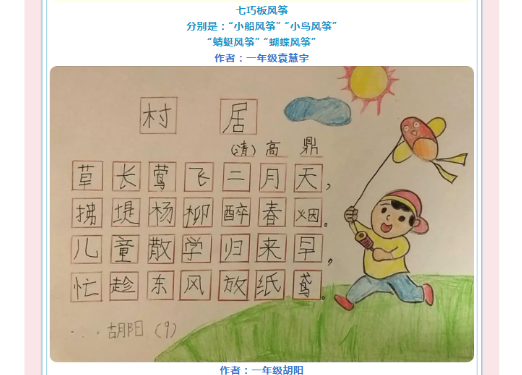 七巧板风筝
分别是：“小船风筝”“小鸟风筝”
“蜻蜓风筝”“蝴蝶风筝”
作者：一年级袁慧宇
村居
(清)高鼎
草长莺飞二月天，
拂堤杨柳醉春烟。
儿童散学归来早，
忙趁东风放纸鸢。
胡阳(9)
作者：一年级胡阳